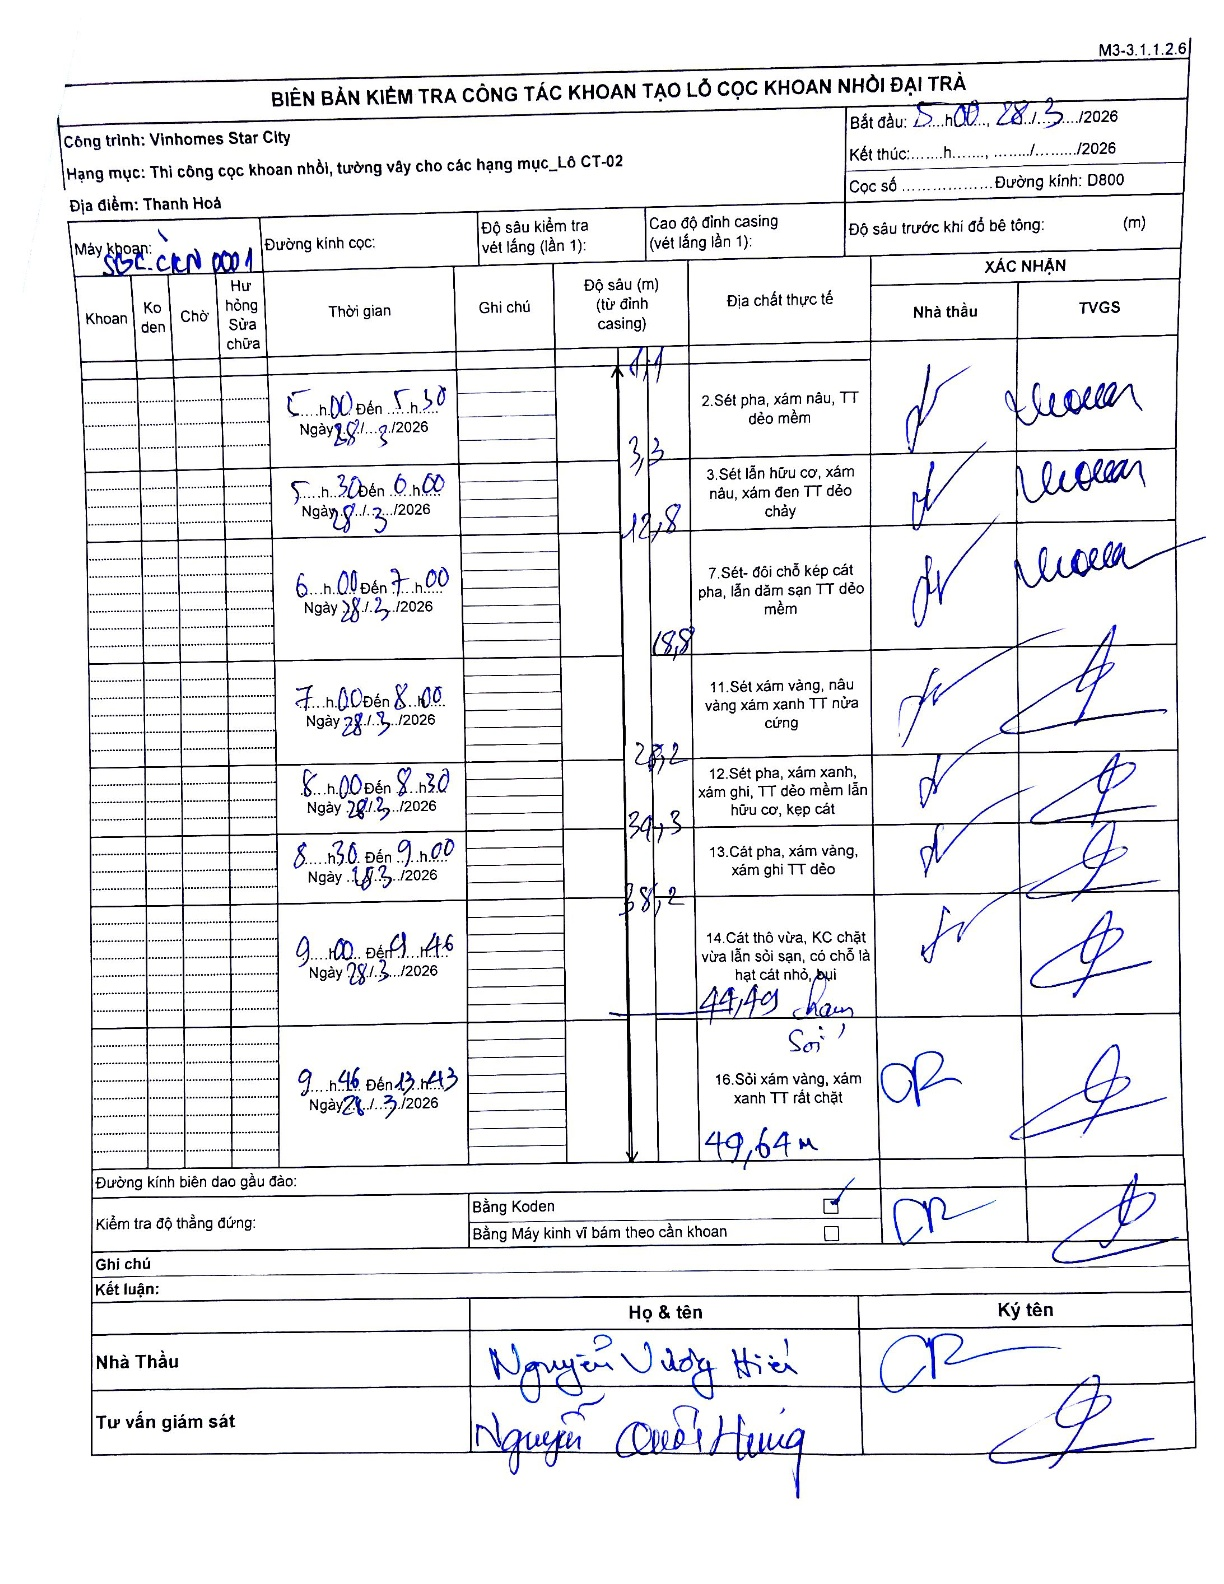 M3-3.1.1.2.6
BIÊN BẢN KIỂM TRA CÔNG TÁC KHOAN TẠO LỖ CỌC KHOAN NHỒI ĐẠI TRÀ
Công trình: Vinhomes Star City
Hạng mục: Thi công cọc khoan nhồi, tường vây cho các hạng mục_Lô CT-02
Địa điểm: Thanh Hoá
Bắt đầu: 5...h00.., 28../..3..../2026
Kết thúc:.......h......, ......../........./2026
Cọc số ....................Đường kính: D800
Máy khoan:
Đường kính cọc:
Độ sâu kiểm tra
vét lắng (lần 1):
Cao độ đỉnh casing
(vét lắng lần 1):
Độ sâu trước khi đổ bê tông: (m)
Khoan
Ko
den
Chờ
Hư
hỏng
Sửa
chữa
Thời gian
Ghi chú
Độ sâu (m)
(từ đỉnh
casing)
Địa chất thực tế
XÁC NHẬN
Nhà thầu
TVGS
1,1
5....h.00 Đến ..5.h.30
Ngày 28./...3./2026
2.Sét pha, xám nâu, TT
dẻo mềm
3,3
5....h..30Đến .6.h00
Ngày 28../.3../2026
3.Sét lẫn hữu cơ, xám
nâu, xám đen TT dẻo
chảy
12,8
6....h.00Đến 7..h.00
Ngày 28./.3../2026
7.Sét- đôi chỗ kép cát
pha, lẫn dăm sạn TT dẻo
mềm
18,8
7....h.00Đến 8..h.00
Ngày 28./.3.../2026
11.Sét xám vàng, nâu
vàng xám xanh TT nửa
cứng
8....h.00Đến 8..h30
Ngày .28./.3.../2026
12.Sét pha, xám xanh,
xám ghi, TT dẻo mềm lẫn
hữu cơ, kẹp cát
34,3
8.....h30. Đến .9..h.00
Ngày ..28.3.../2026
13.Cát pha, xám vàng,
xám ghi TT dẻo
38,2
9....h00.. Đến 9...h.46
Ngày 28./.3.../2026
14.Cát thô vừa, KC chặt
vừa lẫn sỏi sạn, có chỗ là
hạt cát nhỏ, bụi
44,49 chạm
Sỏi
9....h.46. Đến 13.h.43
Ngày 28./...3./2026
16.Sỏi xám vàng, xám
xanh TT rất chặt
49,64 m
Đường kính biên dao gầu đào:
Kiểm tra độ thẳng đứng:
Bằng Koden
Bằng Máy kinh vĩ bám theo cần khoan
Ghi chú
Kết luận:
Họ & tên
Ký tên
Nhà Thầu
Nguyễn Vương Hiếu
Tư vấn giám sát
Nguyễn Quốc Hưng